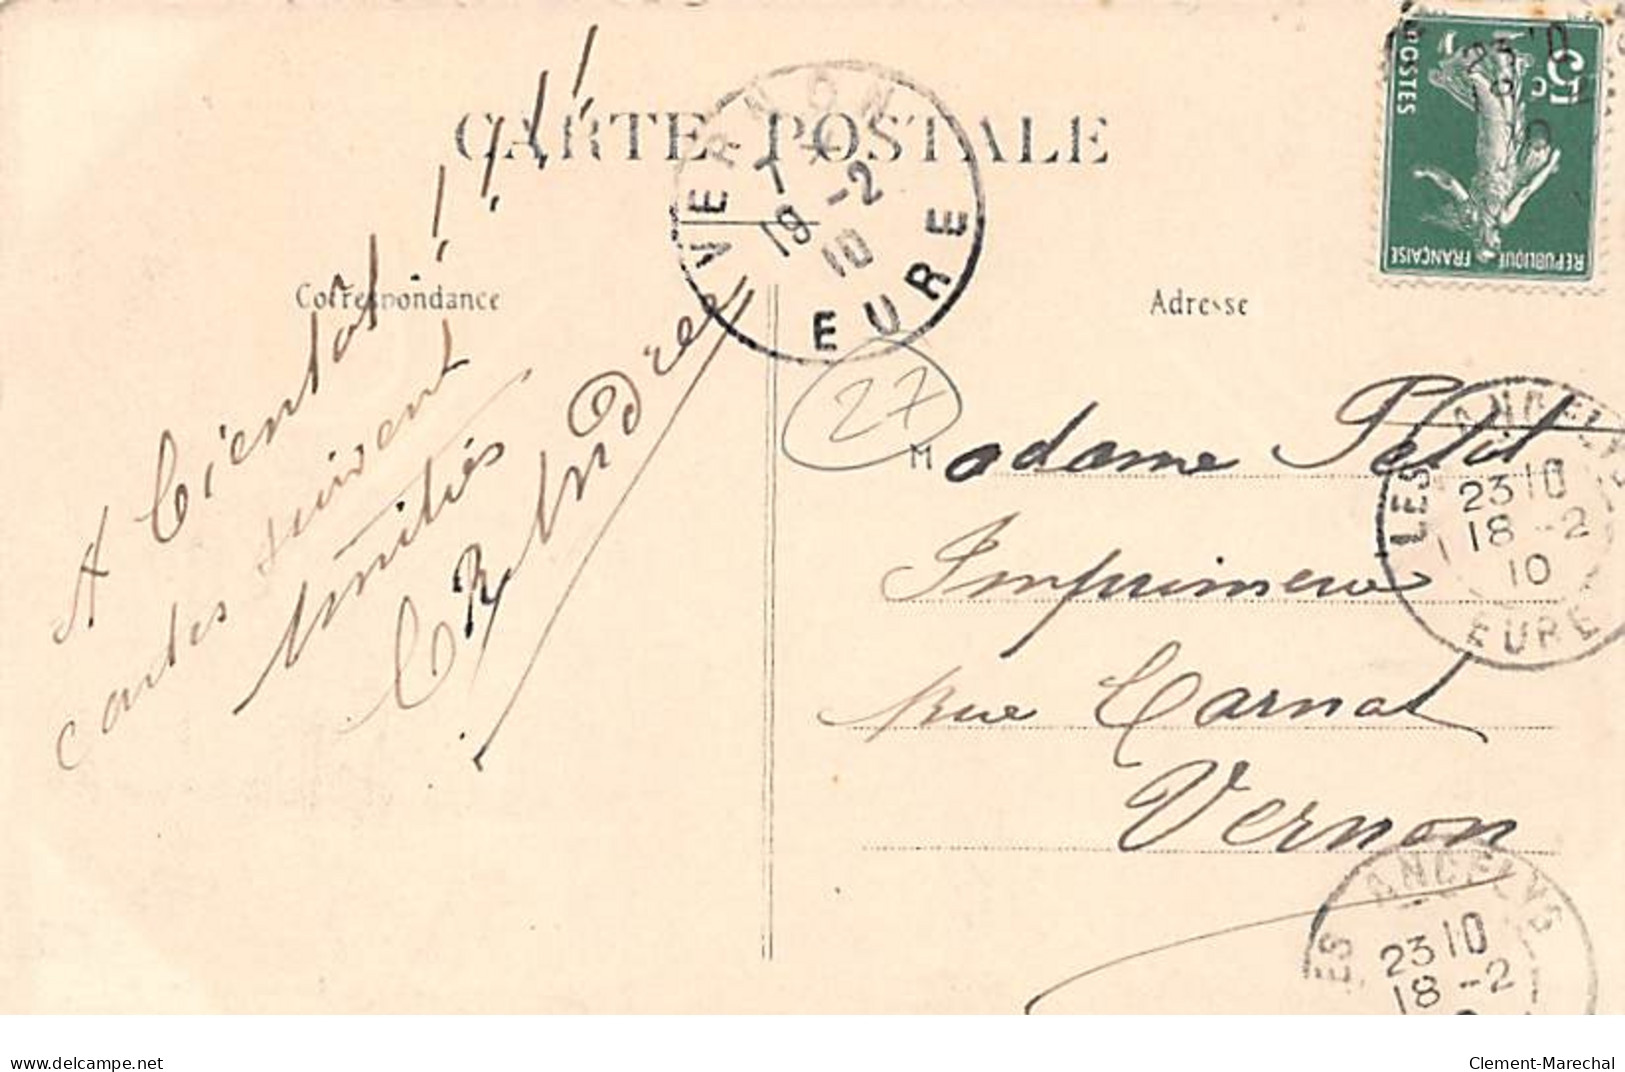 CARTE POSTALE
Correspondance
Adresse
A bientot !!!!!
cartes suivent
Amitiés
André
27
M adame Petit
Imprimeur
Rue Carnot
Vernon
VERNON
7
19 -2
10
EURE
LES ANDELYS
23 10
18 -2
10
EURE
LES ANDELYS
23 10
18 -2
5c
POSTES
REPUBLIQUE FRANÇAISE
www.delcampe.net
Clement-Marechal